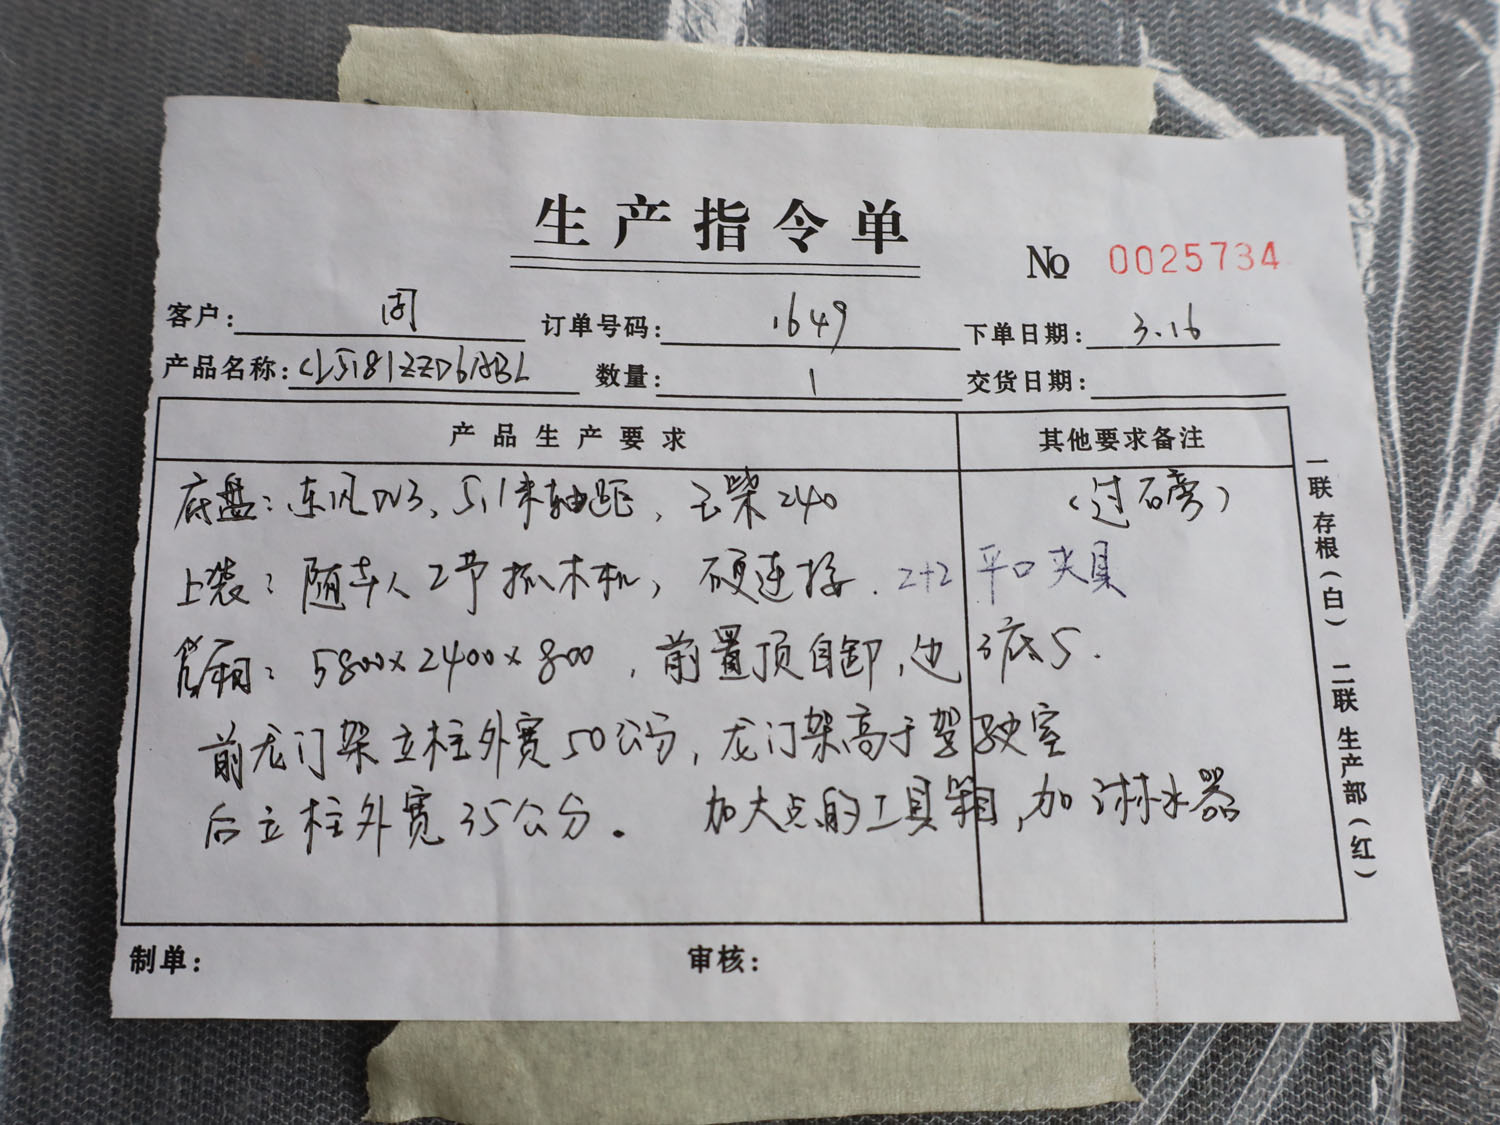 生产指令单
No 0025734
客户: 周 订单号码: 1649 下单日期: 3.16
产品名称: CL5181ZZD6ABL 数量: 1 交货日期:
产品生产要求 其他要求备注
底盘: 东风DV3, 5.1米轴距, 玉柴240 (过磅)
上装: 随车人2节抓木机, 硬连接. 2+2 平口夹具
货厢: 5800×2400×800, 前置顶自卸, 边3底5.
前龙门架立柱外宽50公分, 龙门架高于驾驶室
后立柱外宽35公分. 加大点的工具箱, 加淋水器
制单: 审核:
一联存根(白) 二联生产部(红)